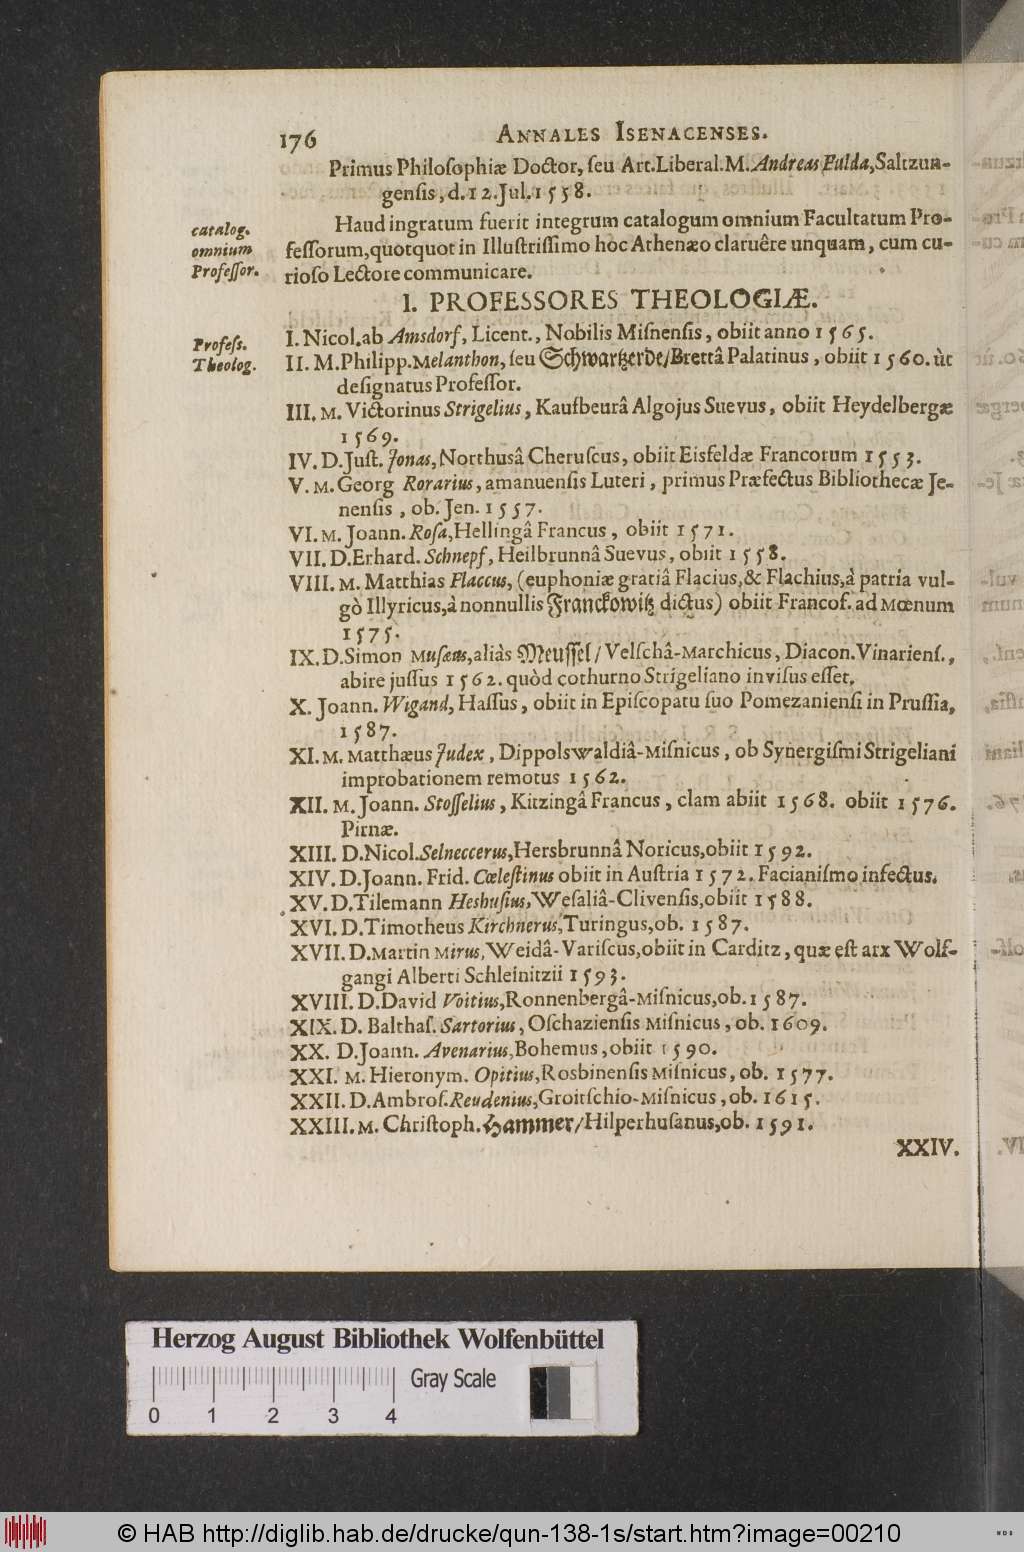 176 ANNALES ISENACENSES.
Primus Philoſophiæ Doctor, ſeu Art. Liberal. M. Andreas Fulda, Saltzun-
genſis, d. 12. Jul. 1558.
Haud ingratum fuerit integrum catalogum omnium Facultatum Pro-
feſſorum, quotquot in Illuſtriſſimo hoc Athenæo claruêre unquam, cum cu-
rioſo Lectore communicare.
catalog.
omnium
Profeſſor.
I. PROFESSORES THEOLOGIÆ.
Profeſs.
Theolog.
I. Nicol. ab Amsdorf, Licent., Nobilis Miſnenſis, obiit anno 1565.
II. M. Philipp. Melanthon, ſeu Schwartzerde/ Brettâ Palatinus, obiit 1560. ùt
deſignatus Profeſſor.
III. M. Victorinus Strigelius, Kaufbeurâ Algojus Suevus, obiit Heydelbergæ
1569.
IV. D. Juſt. Jonas, Northusâ Cheruſcus, obiit Eisfeldæ Francorum 1553.
V. M. Georg Rorarius, amanuenſis Luteri, primus Præfectus Bibliothecæ Je-
nenſis, ob. Jen. 1557.
VI. M. Joann. Roſa, Hellingâ Francus, obiit 1571.
VII. D. Erhard. Schnepf, Heilbrunnâ Suevus, obiit 1558.
VIII. M. Matthias Flaccus, (euphoniæ gratiâ Flacius, & Flachius, à patria vul-
gò Illyricus, à nonnullis Franckowitz dictus) obiit Francof. ad Mœnum
1575.
IX. D. Simon Muſæus, aliàs Meuſſel/ Velſchâ-Marchicus, Diacon. Vinarienſ.,
abire juſſus 1562. quòd cothurno Strigeliano inviſus eſſet.
X. Joann. Wigand, Haſſus, obiit in Epiſcopatu ſuo Pomezanienſi in Pruſſia,
1587.
XI. M. Matthæus Judex, Dippolswaldiâ-Miſnicus, ob Synergiſmi Strigeliani
improbationem remotus 1562.
XII. M. Joann. Stoſſelius, Kitzingâ Francus, clam abiit 1568. obiit 1576.
Pirnæ.
XIII. D. Nicol. Selneccerus, Hersbrunnâ Noricus, obiit 1592.
XIV. D. Joann. Frid. Cœleſtinus obiit in Auſtria 1572. Facianiſmo infectus.
XV. D. Tilemann Heshuſius, Weſaliâ-Clivenſis, obiit 1588.
XVI. D. Timotheus Kirchnerus, Turingus, ob. 1587.
XVII. D. Martin Mirus, Weidâ-Variſcus, obiit in Carditz, quæ eſt arx Wolf-
gangi Alberti Schleinitzii 1593.
XVIII. D. David Voitius, Ronnenbergâ-Miſnicus, ob. 1587.
XIX. D. Balthaſ. Sartorius, Oſchazienſis Miſnicus, ob. 1609.
XX. D. Joann. Avenarius, Bohemus, obiit 1590.
XXI. M. Hieronym. Opitius, Rosbinenſis Miſnicus, ob. 1577.
XXII. D. Ambroſ. Reudenius, Groitſchio-Miſnicus, ob. 1615.
XXIII. M. Chriſtoph. Hammer/ Hilperhuſanus, ob. 1591.
XXIV.
Herzog August Bibliothek Wolfenbüttel
Gray Scale
0 1 2 3 4
© HAB http://diglib.hab.de/drucke/qun-138-1s/start.htm?image=00210